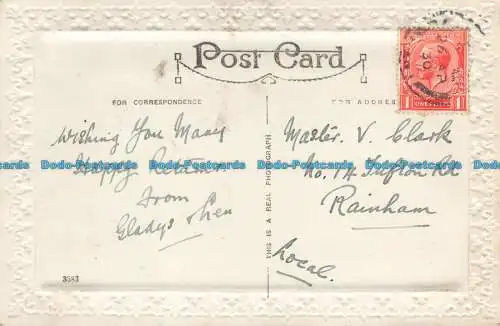 Post Card
FOR CORRESPONDENCE
FOR ADDRESS
Wishing You Many
Happy Returns
from
Gladys
THIS IS A REAL PHOTOGRAPH
Master. V. Clark
No. 14
Rainham
Local.
3583
ONE PENNY
Dodo-Postcards Dodo-Postcards Dodo-Postcards Dodo-Postcards Dodo-Postcards